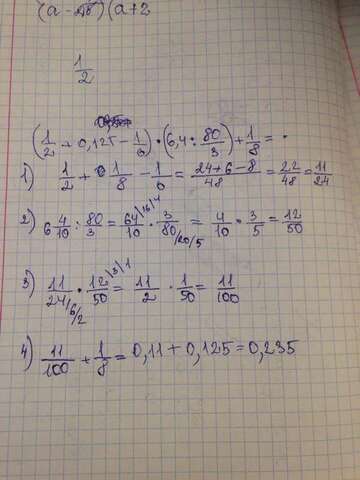 (a - )(a+2
1/2
(1/2 + 0,125 - 1/6) · (6,4 : 80/3) + 1/8 =
1) 1/2 + 1/8 - 1/6 = 24+6-8/48 = 22/48 = 11/24
2) 6 4/10 : 80/3 = 64|16|4/10 · 3/80/20/5 = 4/10 · 3/5 = 12/50
3) 11/24/6/2 · 12|3|1/50 = 11/2 · 1/50 = 11/100
4) 11/100 + 1/8 = 0,11 + 0,125 = 0,235